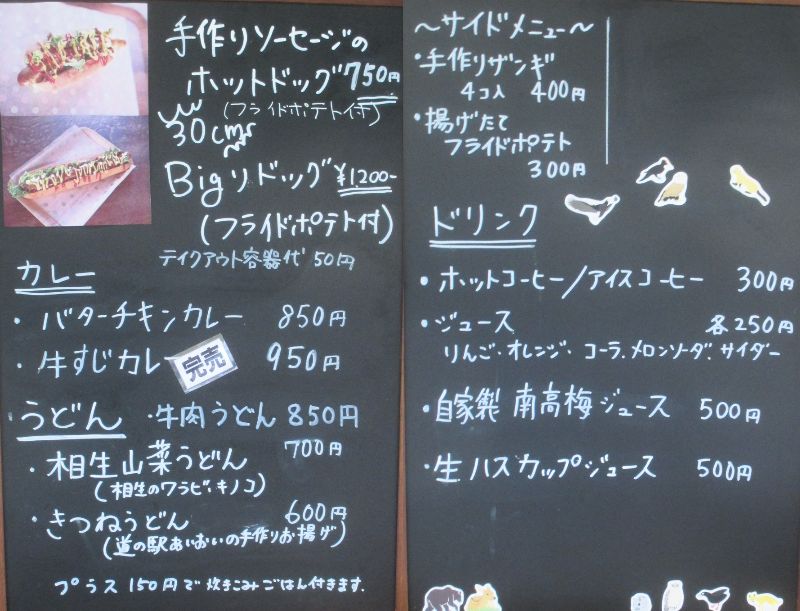 手作りソーセージの
ホットドッグ 750円
(フライドポテト付)
30cm
Bigリドッグ ¥1,200-
(フライドポテト付)
テイクアウト容器代 50円
カレー
・バターチキンカレー 850円
・牛すじカレー 950円
完売
うどん ・牛肉うどん 850円
・相生山菜うどん 700円
(相生のワラビ、キノコ)
・きつねうどん 600円
(道の駅あいおいの手作りお揚げ)
プラス150円で炊きこみごはん付きます.
〜サイドメニュー〜
・手作りザンギ
4コ入 400円
・揚げたて
フライドポテト
300円
ドリンク
・ホットコーヒー/アイスコーヒー 300円
・ジュース 各250円
りんご・オレンジ・コーラ、メロンソーダ、サイダー
・自家製 南高梅ジュース 500円
・生ハスカップジュース 500円